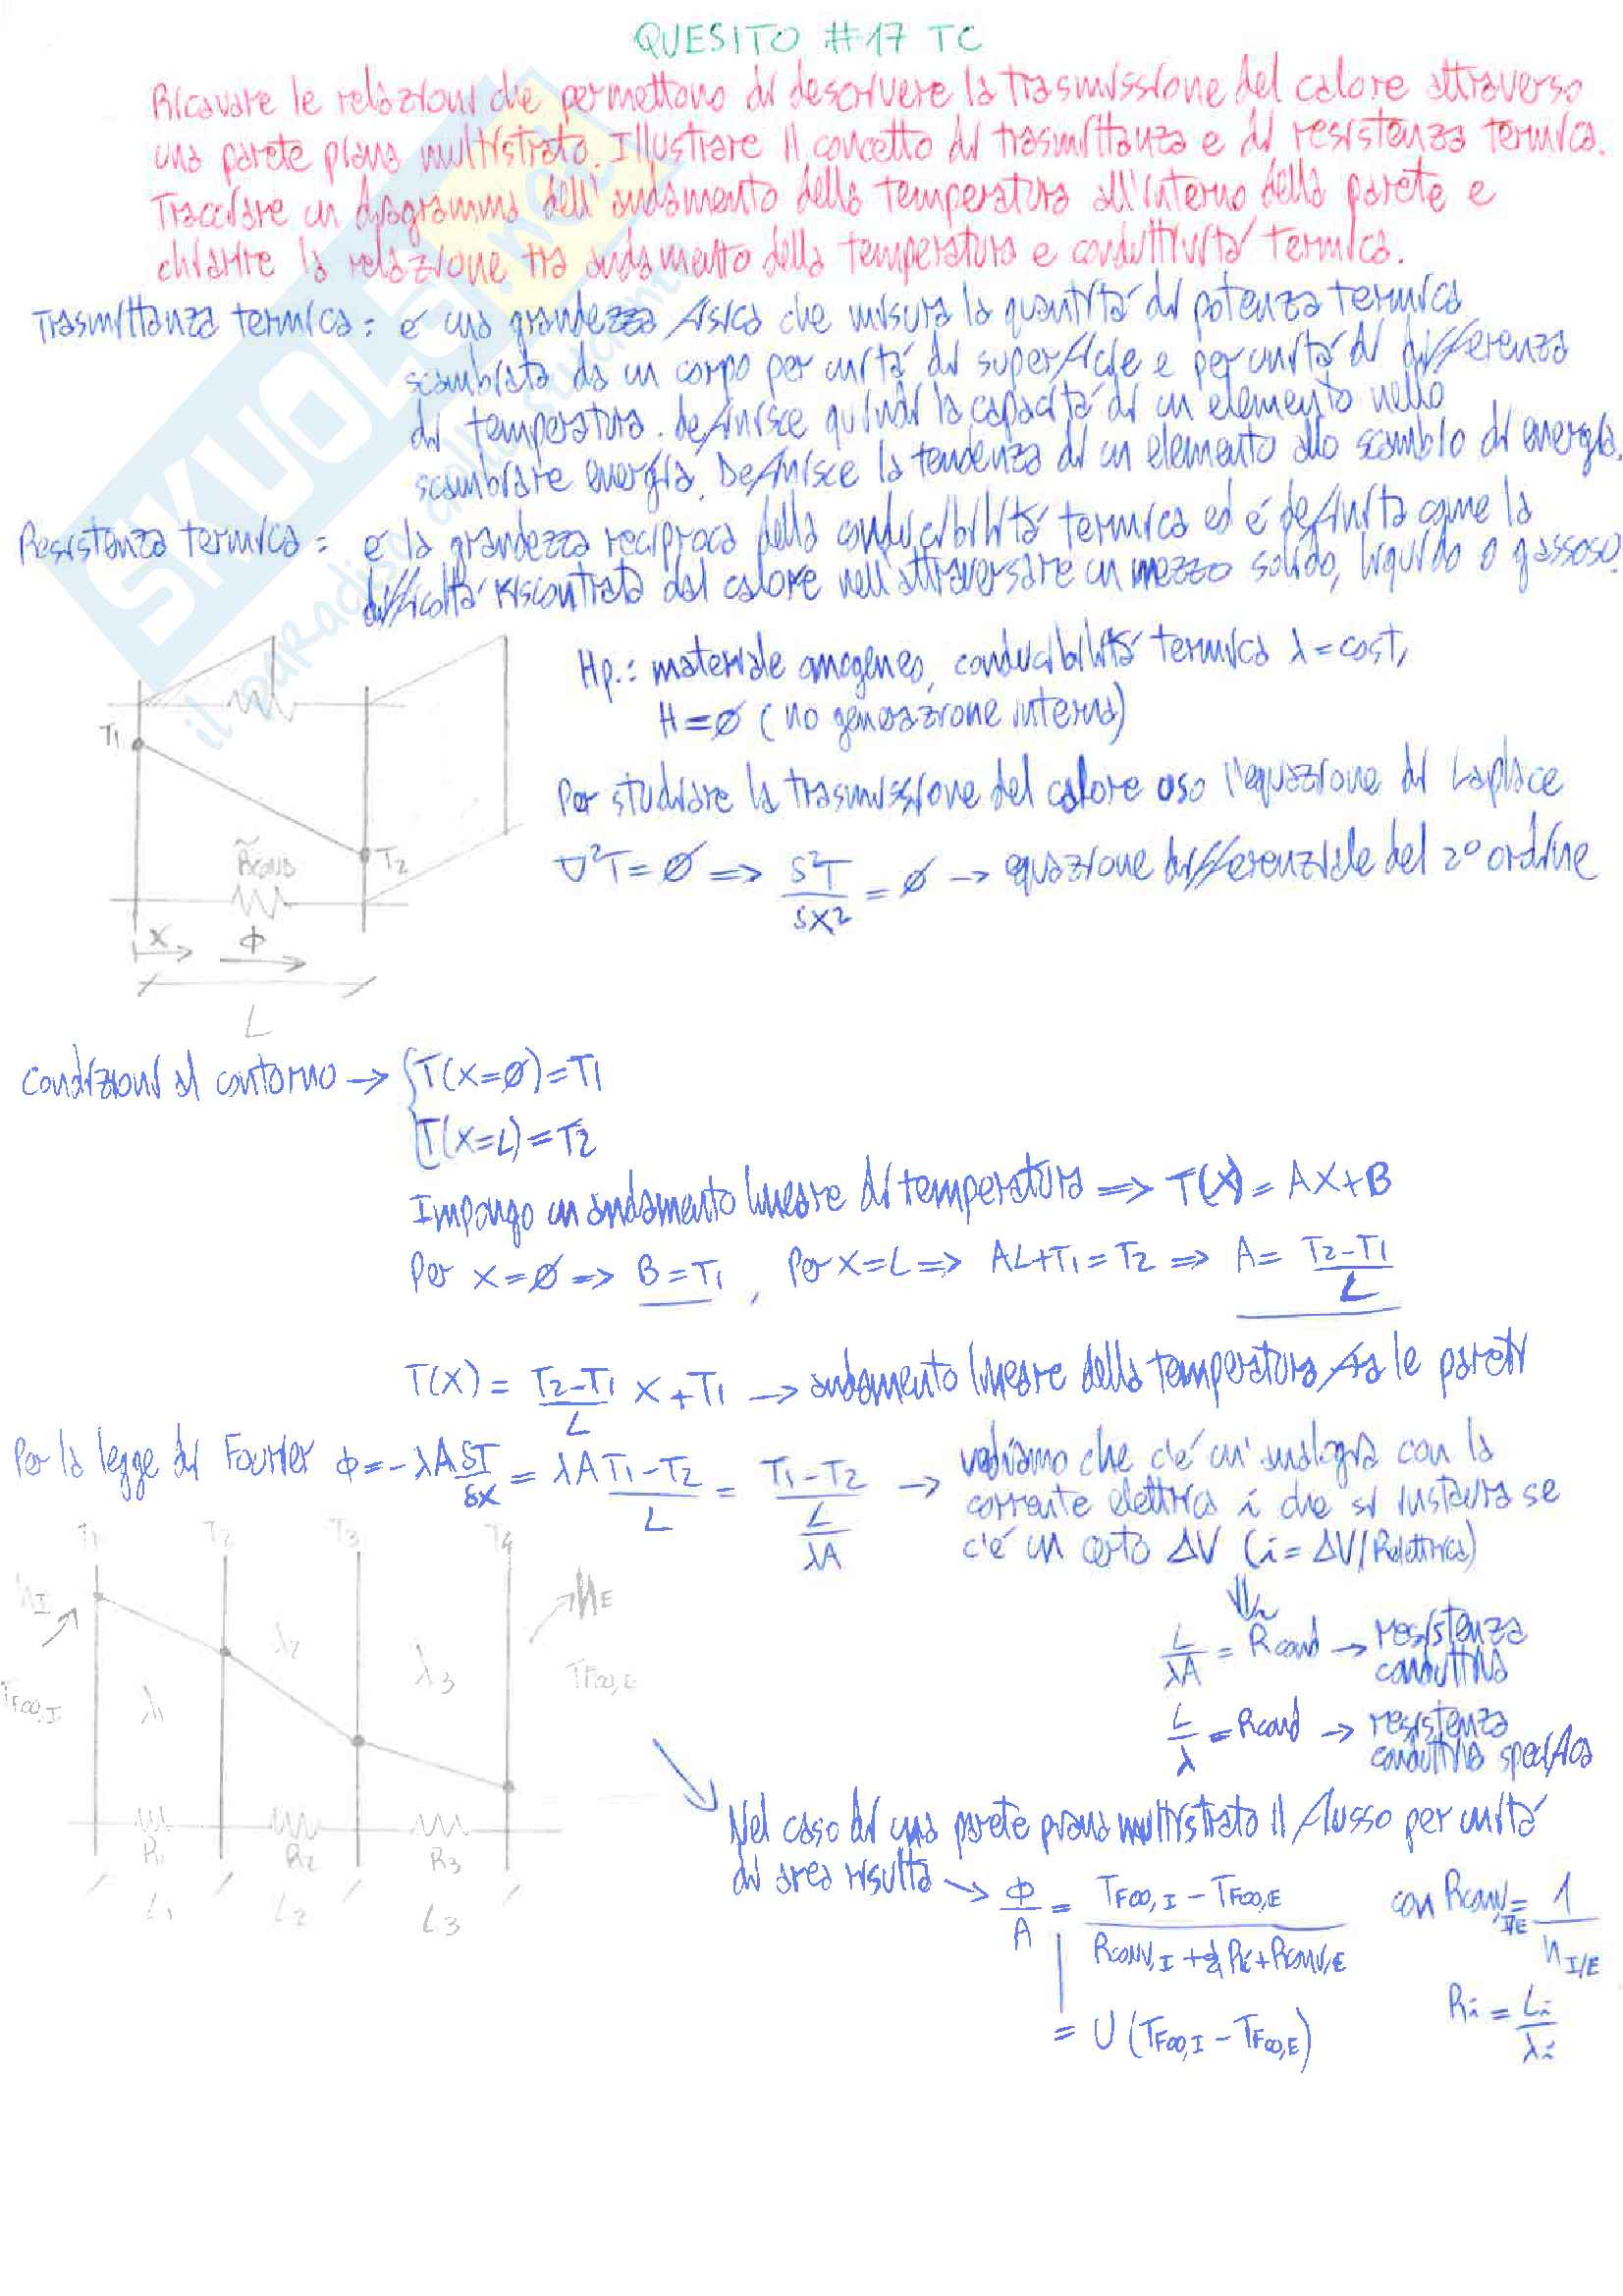 QUESITO #17 TC
Ricavare le relazioni che permettono di descrivere la trasmissione del calore attraverso
una parete piana multistrato. Illustrare il concetto di trasmittanza e di resistenza termica.
Tracciare un diagramma dell'andamento della temperatura all'interno della parete e
chiarire la relazione tra andamento della temperatura e conduttività termica.
Trasmittanza termica: è una grandezza fisica che misura la quantità di potenza termica
scambiata da un corpo per unità di superficie e per unità di differenza
di temperatura. definisce quindi la capacità di un elemento nello
scambiare energia. Definisce la tendenza di un elemento allo scambio di energia.
Resistenza termica: è la grandezza reciproca della conducibilità termica ed è definita come la
difficoltà riscontrata dal calore nell'attraversare un mezzo solido, liquido o gassoso.
SKUOLA.net
il paradiso dello studente
Hp.: materiale omogeneo, conducibilità termica λ=cost,
H=∅ (no generazione interna)
T1
T2
Rcond
x
ϕ
L
Per studiare la trasmissione del calore uso l'equazione di Laplace
∇²T=∅ => δ²T/δx² = ∅ → equazione differenziale del 2° ordine
Condizioni al contorno → { T(x=∅)=T1
T(x=L)=T2
Impongo un andamento lineare di temperatura => T(x)= Ax+B
Per x=∅ => B=T1, Per x=L => AL+T1=T2 => A= (T2-T1)/L
T(x)= (T2-T1)/L x+T1 → andamento lineare della temperatura fra le pareti
Per la legge di Fourier ϕ=-λA δT/δx = λA (T1-T2)/L = (T1-T2)/(L/λA) → vediamo che c'è un'analogia con la
corrente elettrica i che si instaura se
c'è un certo ΔV (i= ΔV/Relettrica)
L/λA = Rcond → resistenza
conduttiva
L/λ = Rcond → resistenza
conduttiva specifica
T1 T2 T3 T4
hI
hE
TF∞,I
TF∞,E
λ1 λ2 λ3
R1 R2 R3
L1 L2 L3
Nel caso di una parete piana multistrato il flusso per unità
di area risulta → ϕ/A = (TF∞,I - TF∞,E)/(Rconv,I + Σi Ri + Rconv,E) con Rconv,I/E = 1/hI/E
= U (TF∞,I - TF∞,E)
Ri = Li/λi